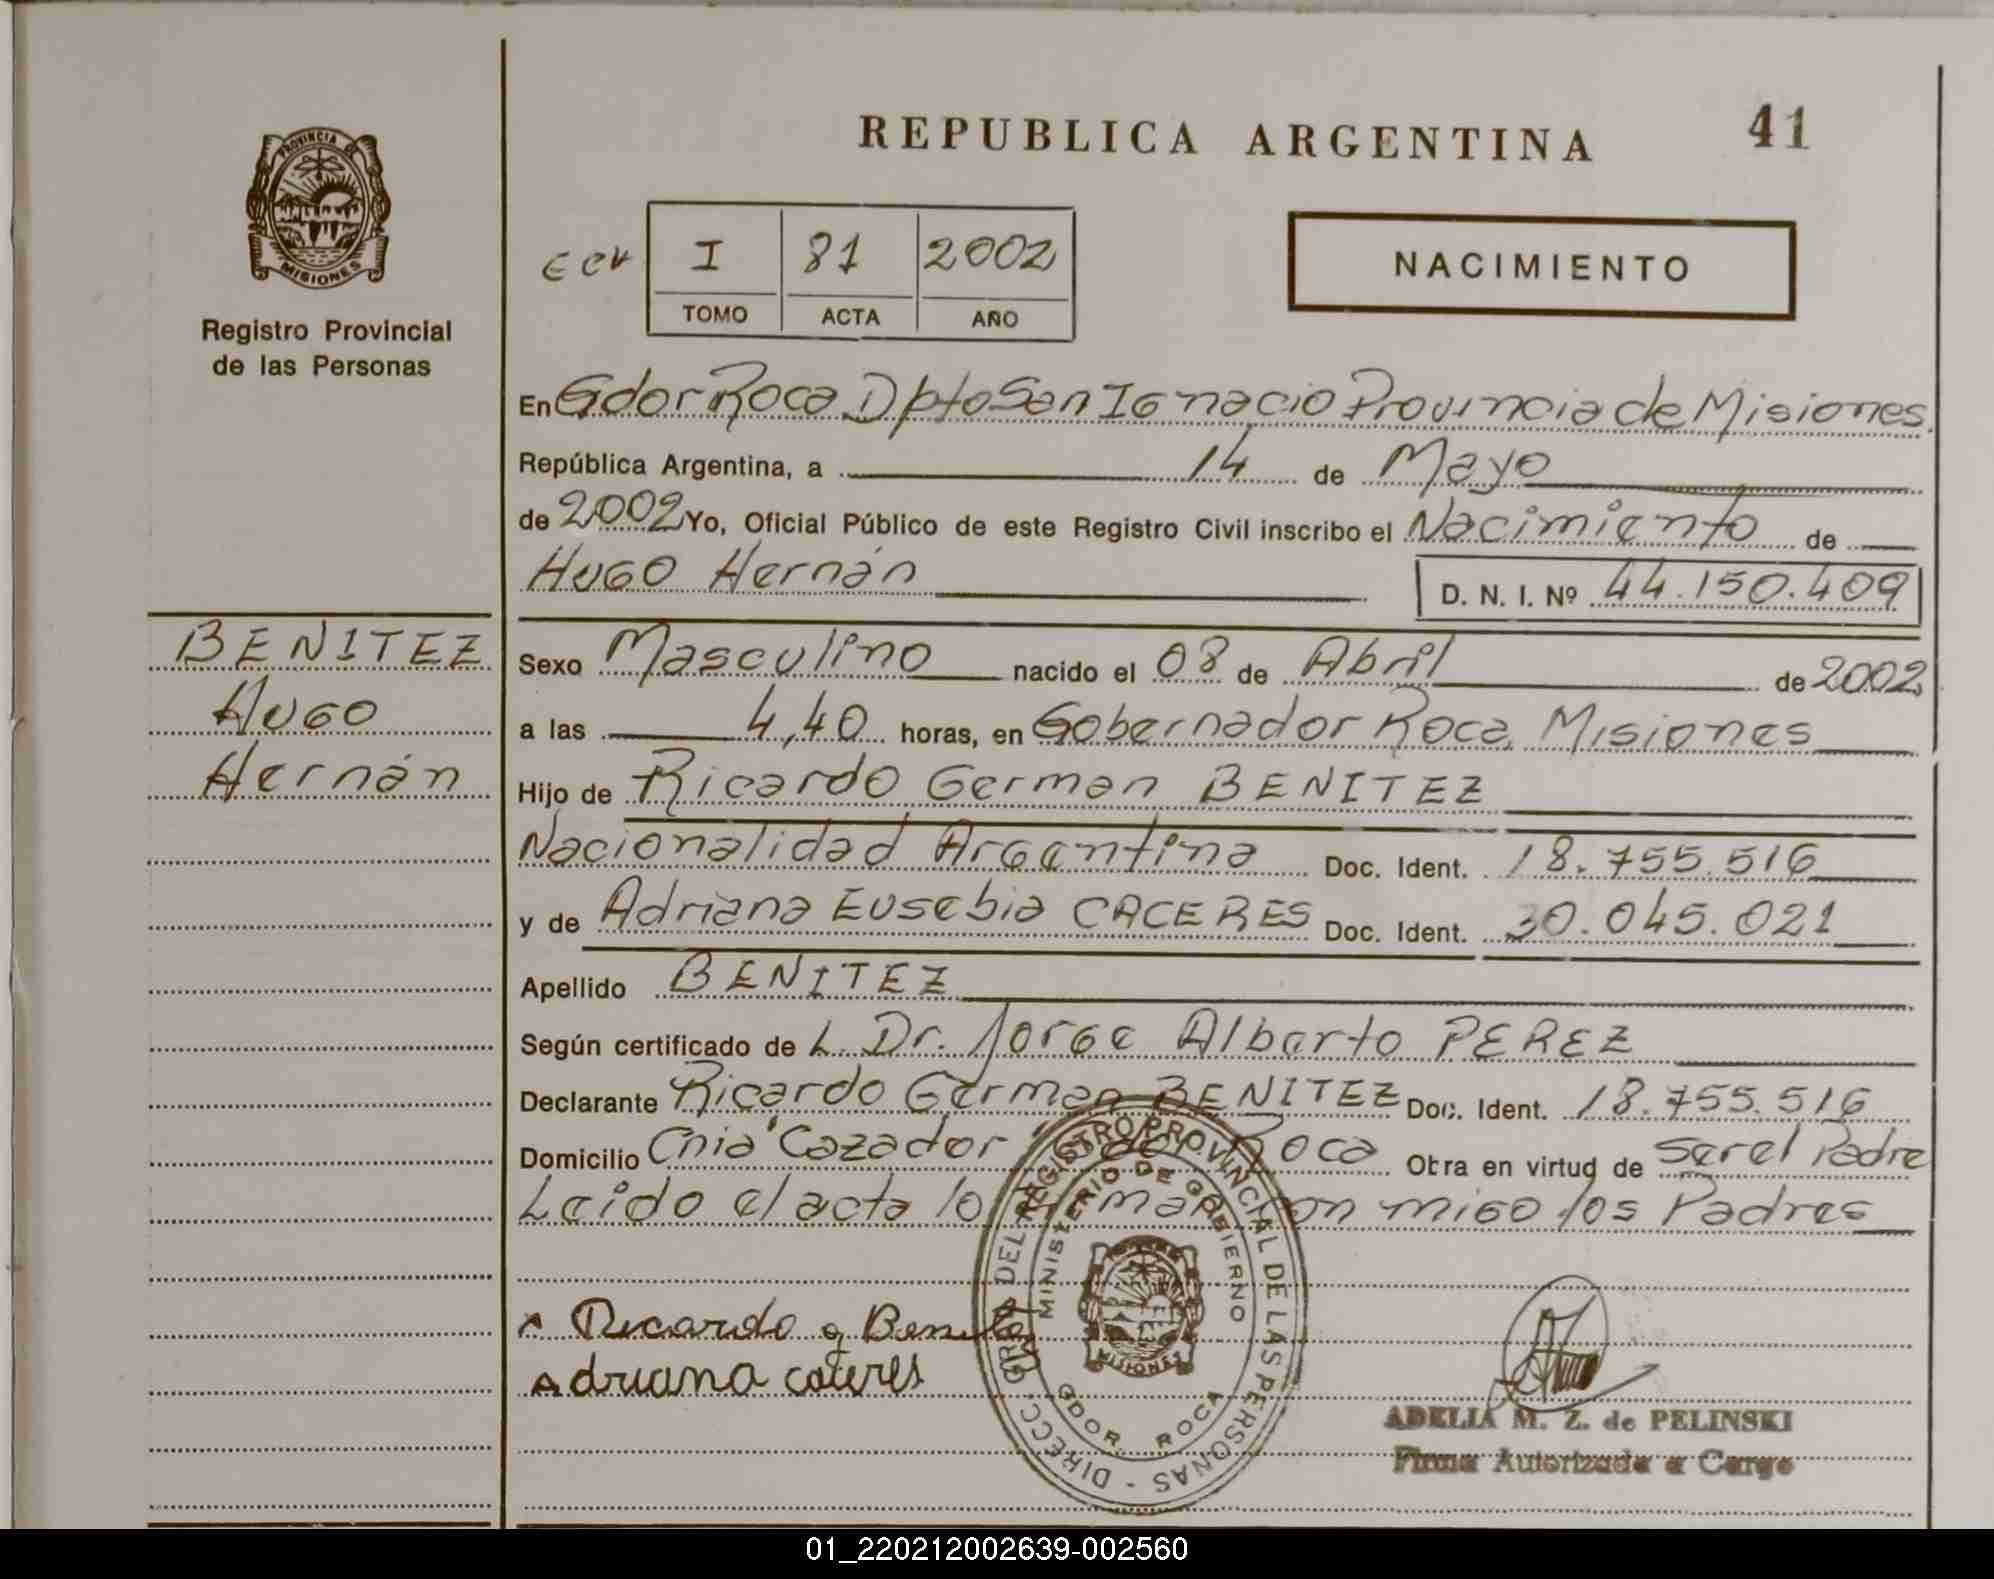 REPUBLICA ARGENTINA
41
PROVINCIA DE
MISIONES
Registro Provincial
de las Personas
I 81 2002
TOMO ACTA AÑO
NACIMIENTO
En Gdor Roca Dpto San Ignacio Provincia de Misiones
República Argentina, a 14 de Mayo
de 2002 Yo, Oficial Público de este Registro Civil inscribo el Nacimiento de
Hugo Hernán
D. N. I. Nº 44.150.409
BENITEZ
Hugo
Hernán
Sexo Masculino nacido el 08 de Abril de 2002
a las 4,40 horas, en Gobernador Roca, Misiones
Hijo de Ricardo German BENITEZ
Nacionalidad Argentina Doc. Ident. 18.755.516
y de Adriana Eusebia CACERES Doc. Ident. 30.045.021
Apellido BENITEZ
Según certificado de L. Dr. Jorge Alberto PEREZ
Declarante Ricardo German BENITEZ Doc. Ident. 18.755.516
Domicilio Cnia Cazador Roca Obra en virtud de ser el Padre
Leido el acta lo firman con migo los Padres
Ricardo g Benitez
Adriana caceres
DIRECC. GRAL DEL REGISTRO PROVINCIAL DE LAS PERSONAS -
MINISTERIO DE GOBIERNO
MISIONES
GDOR. ROCA
ADELIA M. Z. de PELINSKI
Firma Autorizada a Cargo
01_220212002639-002560